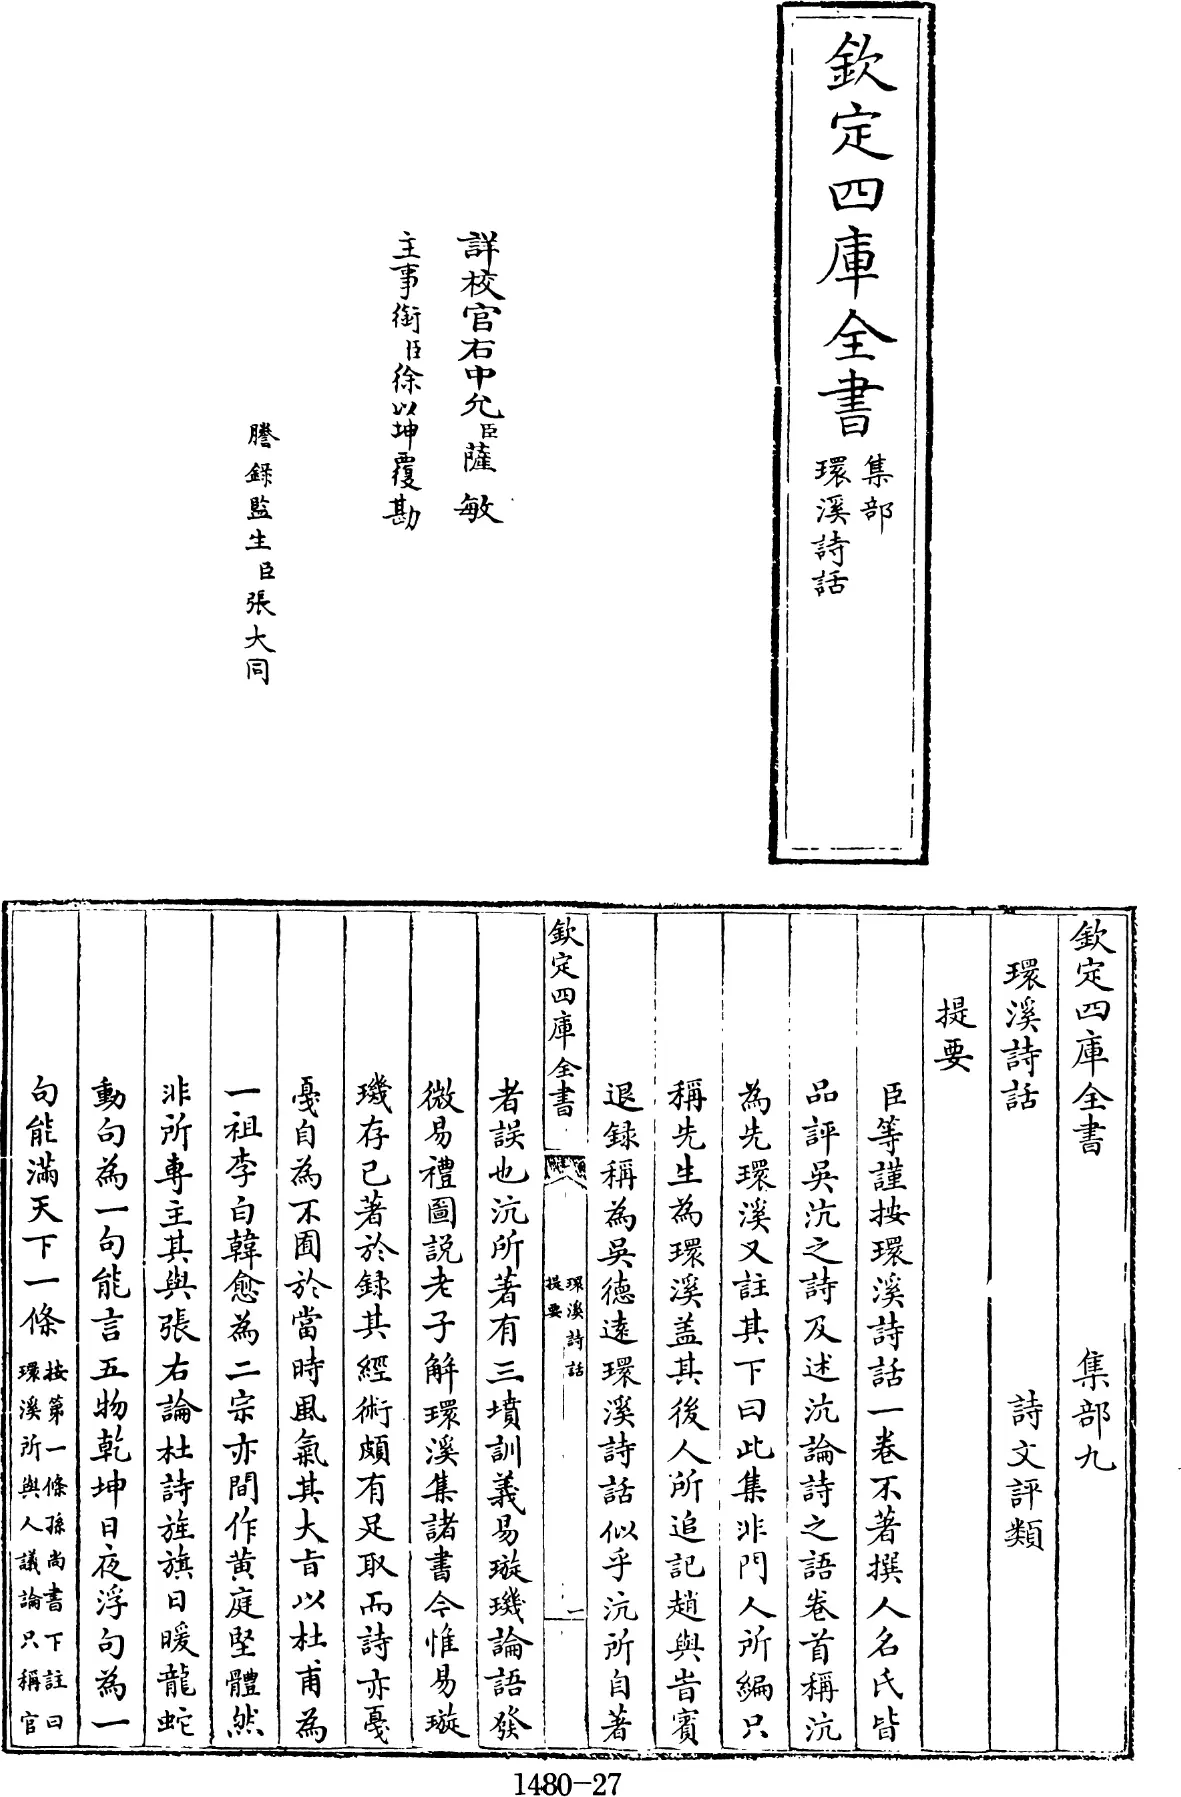 欽定四庫全書
集部
環溪詩話
詳校官右中允臣薩敏
主事銜臣徐以坤覆勘
謄錄監生臣張大同
欽定四庫全書 集部九
環溪詩話 詩文評類
提要
臣等謹按環溪詩話一卷不著撰人名氏皆
品評吳沆之詩及述沆論詩之語卷首稱沆
為先環溪又註其下曰此集非門人所編只
稱先生為環溪盖其後人所追記趙與旹賓
退録稱為吳德逺環溪詩話似乎沆所自著
欽定四庫全書
環溪詩話
提要
一
者誤也沆所著有三墳訓義易璇璣論語發
微易禮圖説老子解環溪集諸書今惟易璇
璣存已著於録其經術頗有足取而詩亦戞
戞自為不囿於當時風氣其大㫖以杜甫為
一祖李白韓愈為二宗亦間作黄庭堅體然
非所專主其與張右論杜詩旌旗日暖龍蛇
動句為一句能言五物乾坤日夜浮句為一
句能滿天下一條按第一條孫尚書下註曰
環溪所與人議論只稱官
1480-27